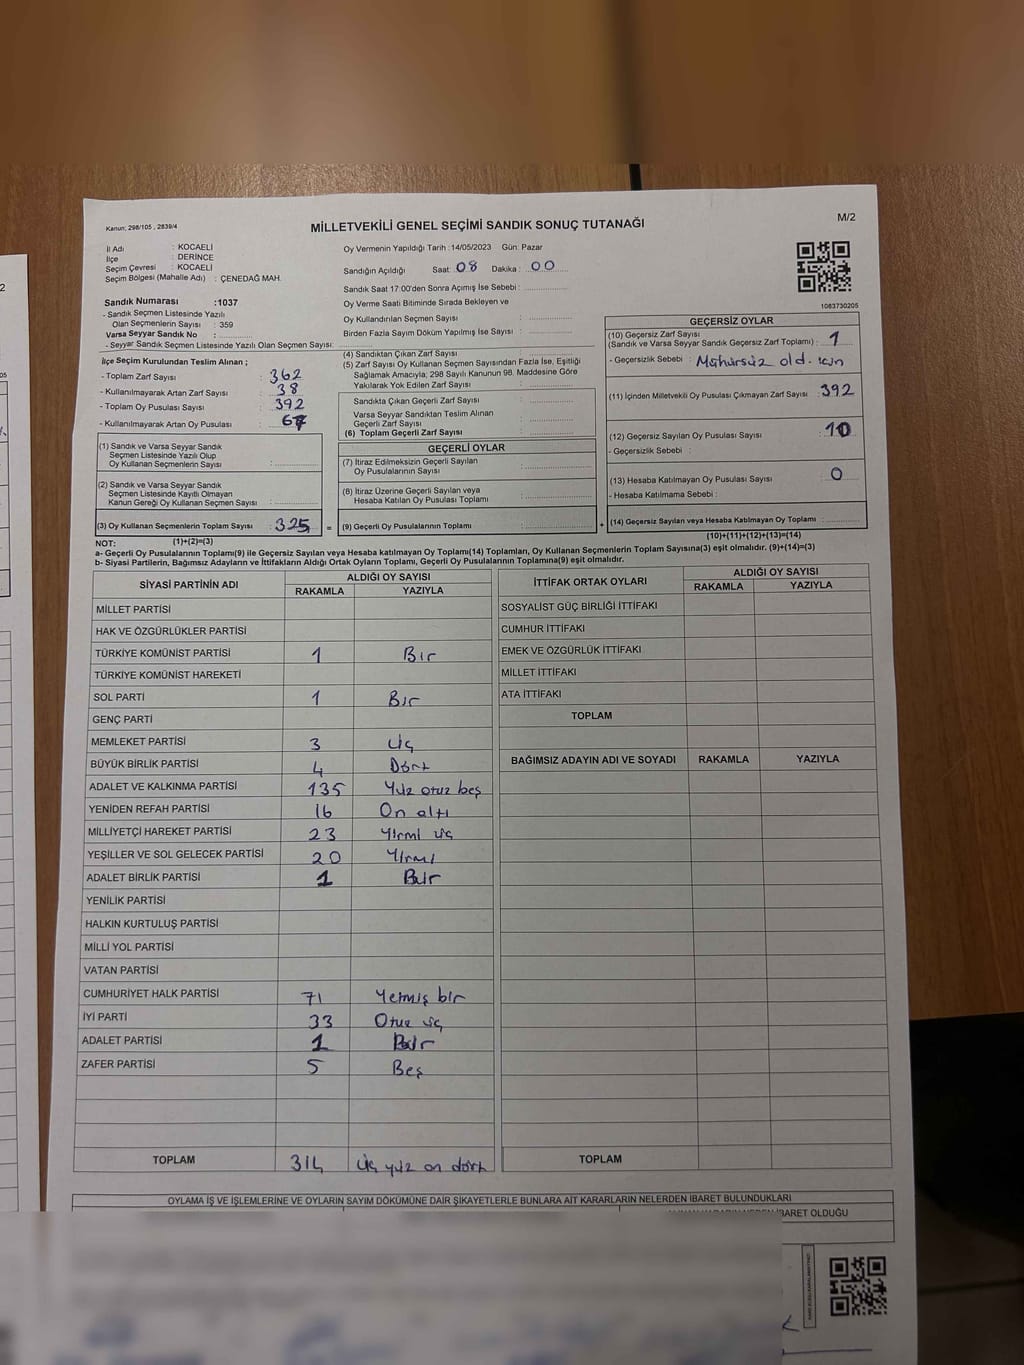 M/2
Kanun; 298/105 , 2839/4
MİLLETVEKİLİ GENEL SEÇİMİ SANDIK SONUÇ TUTANAĞI
İl Adı : KOCAELİ
İlçe : DERİNCE
Seçim Çevresi : KOCAELİ
Seçim Bölgesi (Mahalle Adı) : ÇENEDAĞ MAH.
Sandık Numarası :1037
- Sandık Seçmen Listesinde Yazılı
Olan Seçmenlerin Sayısı : 359
Varsa Seyyar Sandık No :
- Seyyar Sandık Seçmen Listesinde Yazılı Olan Seçmen Sayısı:
İlçe Seçim Kurulundan Teslim Alınan ;
- Toplam Zarf Sayısı : 362
- Kullanılmayarak Artan Zarf Sayısı : 38
- Toplam Oy Pusulası Sayısı : 392
- Kullanılmayarak Artan Oy Pusulası : 67
(1) Sandık ve Varsa Seyyar Sandık
Seçmen Listesinde Yazılı Olup
Oy Kullanan Seçmenlerin Sayısı :
(2) Sandık ve Varsa Seyyar Sandık
Seçmen Listesinde Kayıtlı Olmayan
Kanun Gereği Oy Kullanan Seçmen Sayısı :
(3) Oy Kullanan Seçmenlerin Toplam Sayısı : 325 =
Oy Vermenin Yapıldığı Tarih :14/05/2023 Gün: Pazar
Sandığın Açıldığı Saat: 08 Dakika : 00
Sandık Saat 17:00'den Sonra Açımış İse Sebebi :
Oy Verme Saati Bitiminde Sırada Bekleyen ve
Oy Kullandırılan Seçmen Sayısı :
Birden Fazla Sayım Döküm Yapılmış İse Sayısı :
(4) Sandıktan Çıkan Zarf Sayısı :
(5) Zarf Sayısı Oy Kullanan Seçmen Sayısından Fazla İse, Eşitliği
Sağlamak Amacıyla; 298 Sayılı Kanunun 98. Maddesine Göre
Yakılarak Yok Edilen Zarf Sayısı :
Sandıkta Çıkan Geçerli Zarf Sayısı :
Varsa Seyyar Sandıktan Teslim Alınan
Geçerli Zarf Sayısı :
(6) Toplam Geçerli Zarf Sayısı :
GEÇERLİ OYLAR
(7) İtiraz Edilmeksizin Geçerli Sayılan
Oy Pusulalarının Sayısı :
(8) İtiraz Üzerine Geçerli Sayılan veya
Hesaba Katılan Oy Pusulası Toplamı :
(9) Geçerli Oy Pusulalarının Toplamı : +
1083730205
GEÇERSİZ OYLAR
(10) Geçersiz Zarf Sayısı
(Sandık ve Varsa Seyyar Sandık Geçersiz Zarf Toplamı) : 1
- Geçersizlik Sebebi : Mühürsüz old. için
(11) İçinden Milletvekili Oy Pusulası Çıkmayan Zarf Sayısı : 392
(12) Geçersiz Sayılan Oy Pusulası Sayısı : 10
- Geçersizlik Sebebi :
(13) Hesaba Katılmayan Oy Pusulası Sayısı : 0
- Hesaba Katılmama Sebebi :
(14) Geçersiz Sayılan veya Hesaba Katılmayan Oy Toplamı :
NOT: (1)+(2)=(3) (10)+(11)+(12)+(13)=(14)
a- Geçerli Oy Pusulalarının Toplamı(9) ile Geçersiz Sayılan veya Hesaba katılmayan Oy Toplamı(14) Toplamları, Oy Kullanan Seçmenlerin Toplam Sayısına(3) eşit olmalıdır. (9)+(14)=(3)
b- Siyasi Partilerin, Bağımsız Adayların ve İttifakların Aldığı Ortak Oyların Toplamı, Geçerli Oy Pusulalarının Toplamına(9) eşit olmalıdır.
SİYASİ PARTİNİN ADI ALDIĞI OY SAYISI
RAKAMLA YAZIYLA
MİLLET PARTİSİ
HAK VE ÖZGÜRLÜKLER PARTİSİ
TÜRKİYE KOMÜNİST PARTİSİ 1 Bir
TÜRKİYE KOMÜNİST HAREKETİ
SOL PARTİ 1 Bir
GENÇ PARTİ
MEMLEKET PARTİSİ 3 üç
BÜYÜK BİRLİK PARTİSİ 4 Dört
ADALET VE KALKINMA PARTİSİ 135 Yüz otuz beş
YENİDEN REFAH PARTİSİ 16 On altı
MİLLİYETÇİ HAREKET PARTİSİ 23 Yirmi üç
YEŞİLLER VE SOL GELECEK PARTİSİ 20 Yirmi
ADALET BİRLİK PARTİSİ 1 Bir
YENİLİK PARTİSİ
HALKIN KURTULUŞ PARTİSİ
MİLLİ YOL PARTİSİ
VATAN PARTİSİ
CUMHURİYET HALK PARTİSİ 71 Yetmiş bir
İYİ PARTİ 33 Otuz üç
ADALET PARTİSİ 1 Bir
ZAFER PARTİSİ 5 Beş
TOPLAM 314 üç yüz on dört
İTTİFAK ORTAK OYLARI ALDIĞI OY SAYISI
RAKAMLA YAZIYLA
SOSYALİST GÜÇ BİRLİĞİ İTTİFAKI
CUMHUR İTTİFAKI
EMEK VE ÖZGÜRLÜK İTTİFAKI
MİLLET İTTİFAKI
ATA İTTİFAKI
TOPLAM
BAĞIMSIZ ADAYIN ADI VE SOYADI RAKAMLA YAZIYLA
TOPLAM
OYLAMA İŞ VE İŞLEMLERİNE VE OYLARIN SAYIM DÖKÜMÜNE DAİR ŞİKAYETLERLE BUNLARA AİT KARARLARIN NELERDEN İBARET BULUNDUKLARI
İBARET OLDUĞU